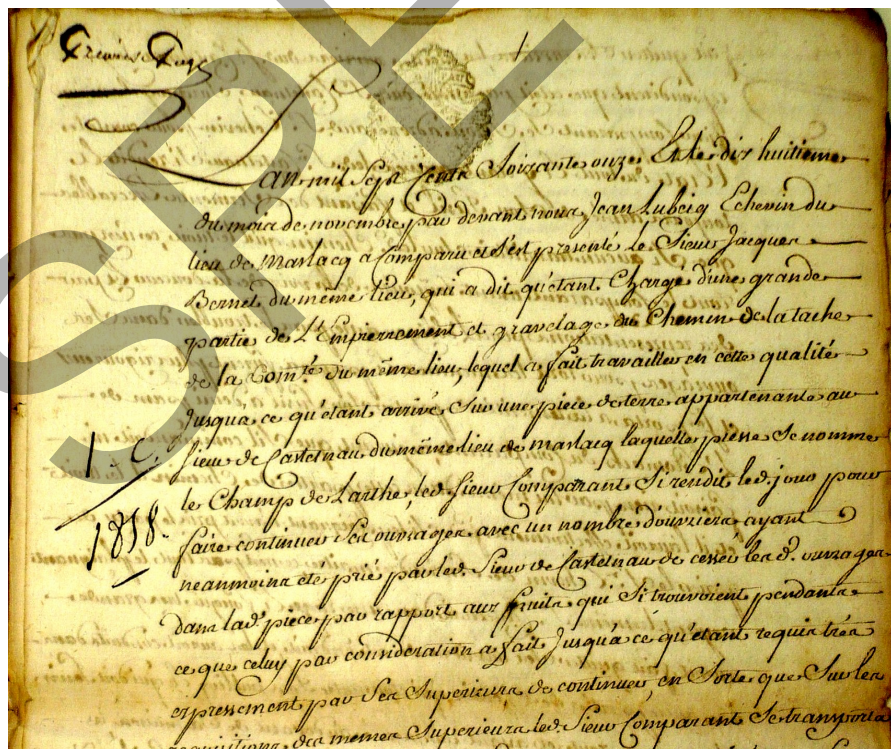 Premiere Page
L'an mil Sept Cents Soixante onze Et le dix huitieme
du mois de novembre par devant nous Jean Lubeig Echevin du
lieu de Marlacq a Comparu et s'est presenté le Sieur Jacques
Bernet du même lieu, qui a dit qu'étant Chargé d'une grande
partie de L'Empierrement et gravelage du Chemin de la tache
de la Com.té du même lieu, lequel a fait travailler en cette qualité
Jusqu'a ce qu'étant arrivé Sur une piece de terre appartenante au
Sieur de Castelnau du même lieu de marlacq laquelle piesse Se nomme
le Champ de Larthe, led. Sieur Comparant Si rendit led. jour pour
faire continuer Ses ouvrages avec un nombre d'ouvriers ayant
neanmoins été prié par led. Sieur de Castelnau de cesser les d. ouvrages
dans lad. piece par rapport aux fruits qui Si trouvoient pendants
ce que celuy par consideration a fait Jusqu'a ce qu'étant requis trés
expressement par Ses Superieurs de continuer, en Sorte que Sur les
requisitions des memes Superieurs led. Sieur Comparant Se transporta
I. C.
1818.
SPE